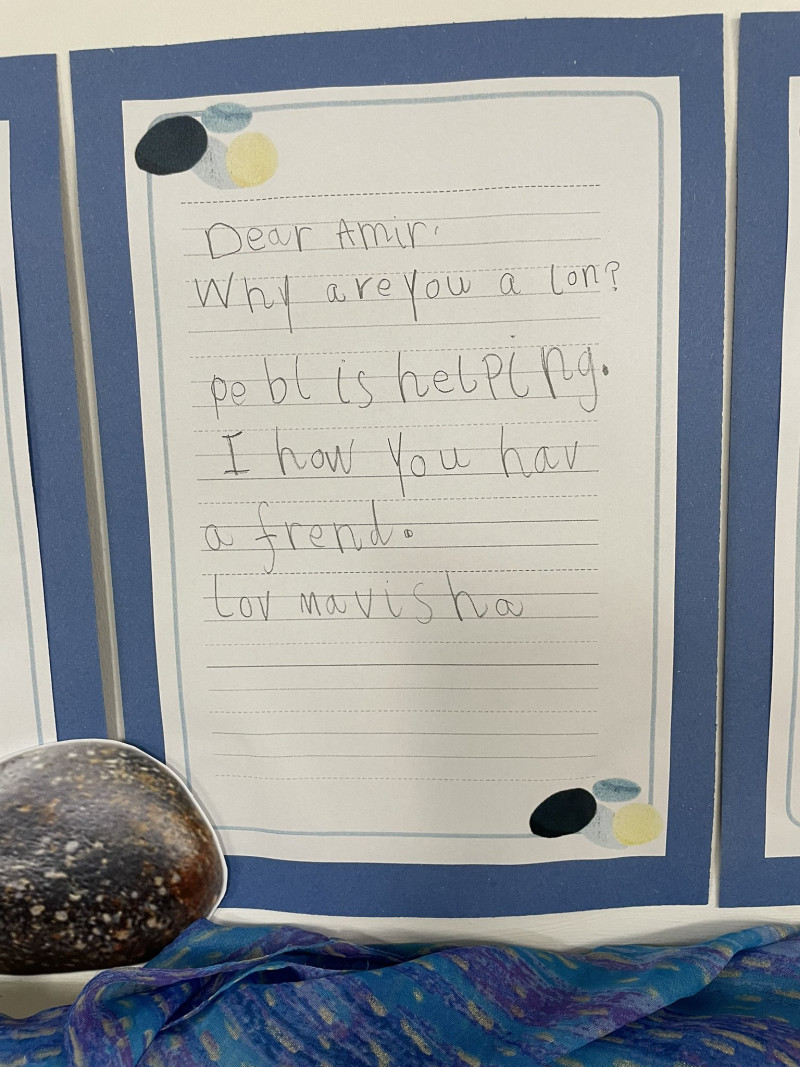 Dear Amir,
Why are you a lon?
pebl is helping.
I how you hav
a frend.
Lov mavisha